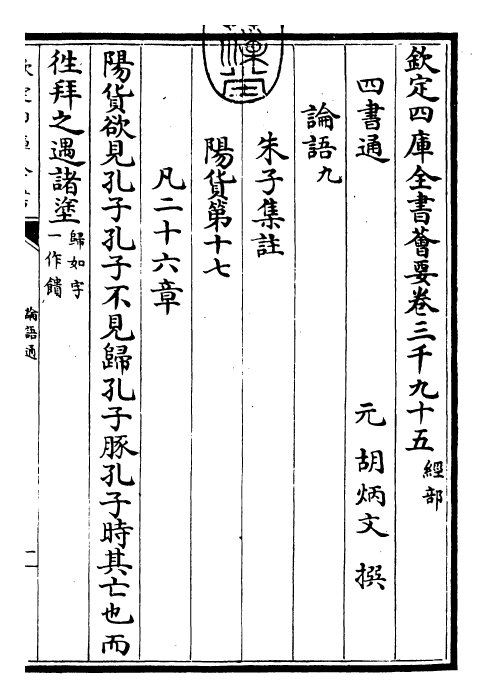 欽定四庫全書薈要卷三千九十五
經部
四書通
元 胡炳文 撰
論語九
朱子集註
陽貨第十七
凡二十六章
陽貨欲見孔子孔子不見歸孔子豚孔子時其亡也而
徃拜之遇諸塗
歸如字
一作饋
論語通